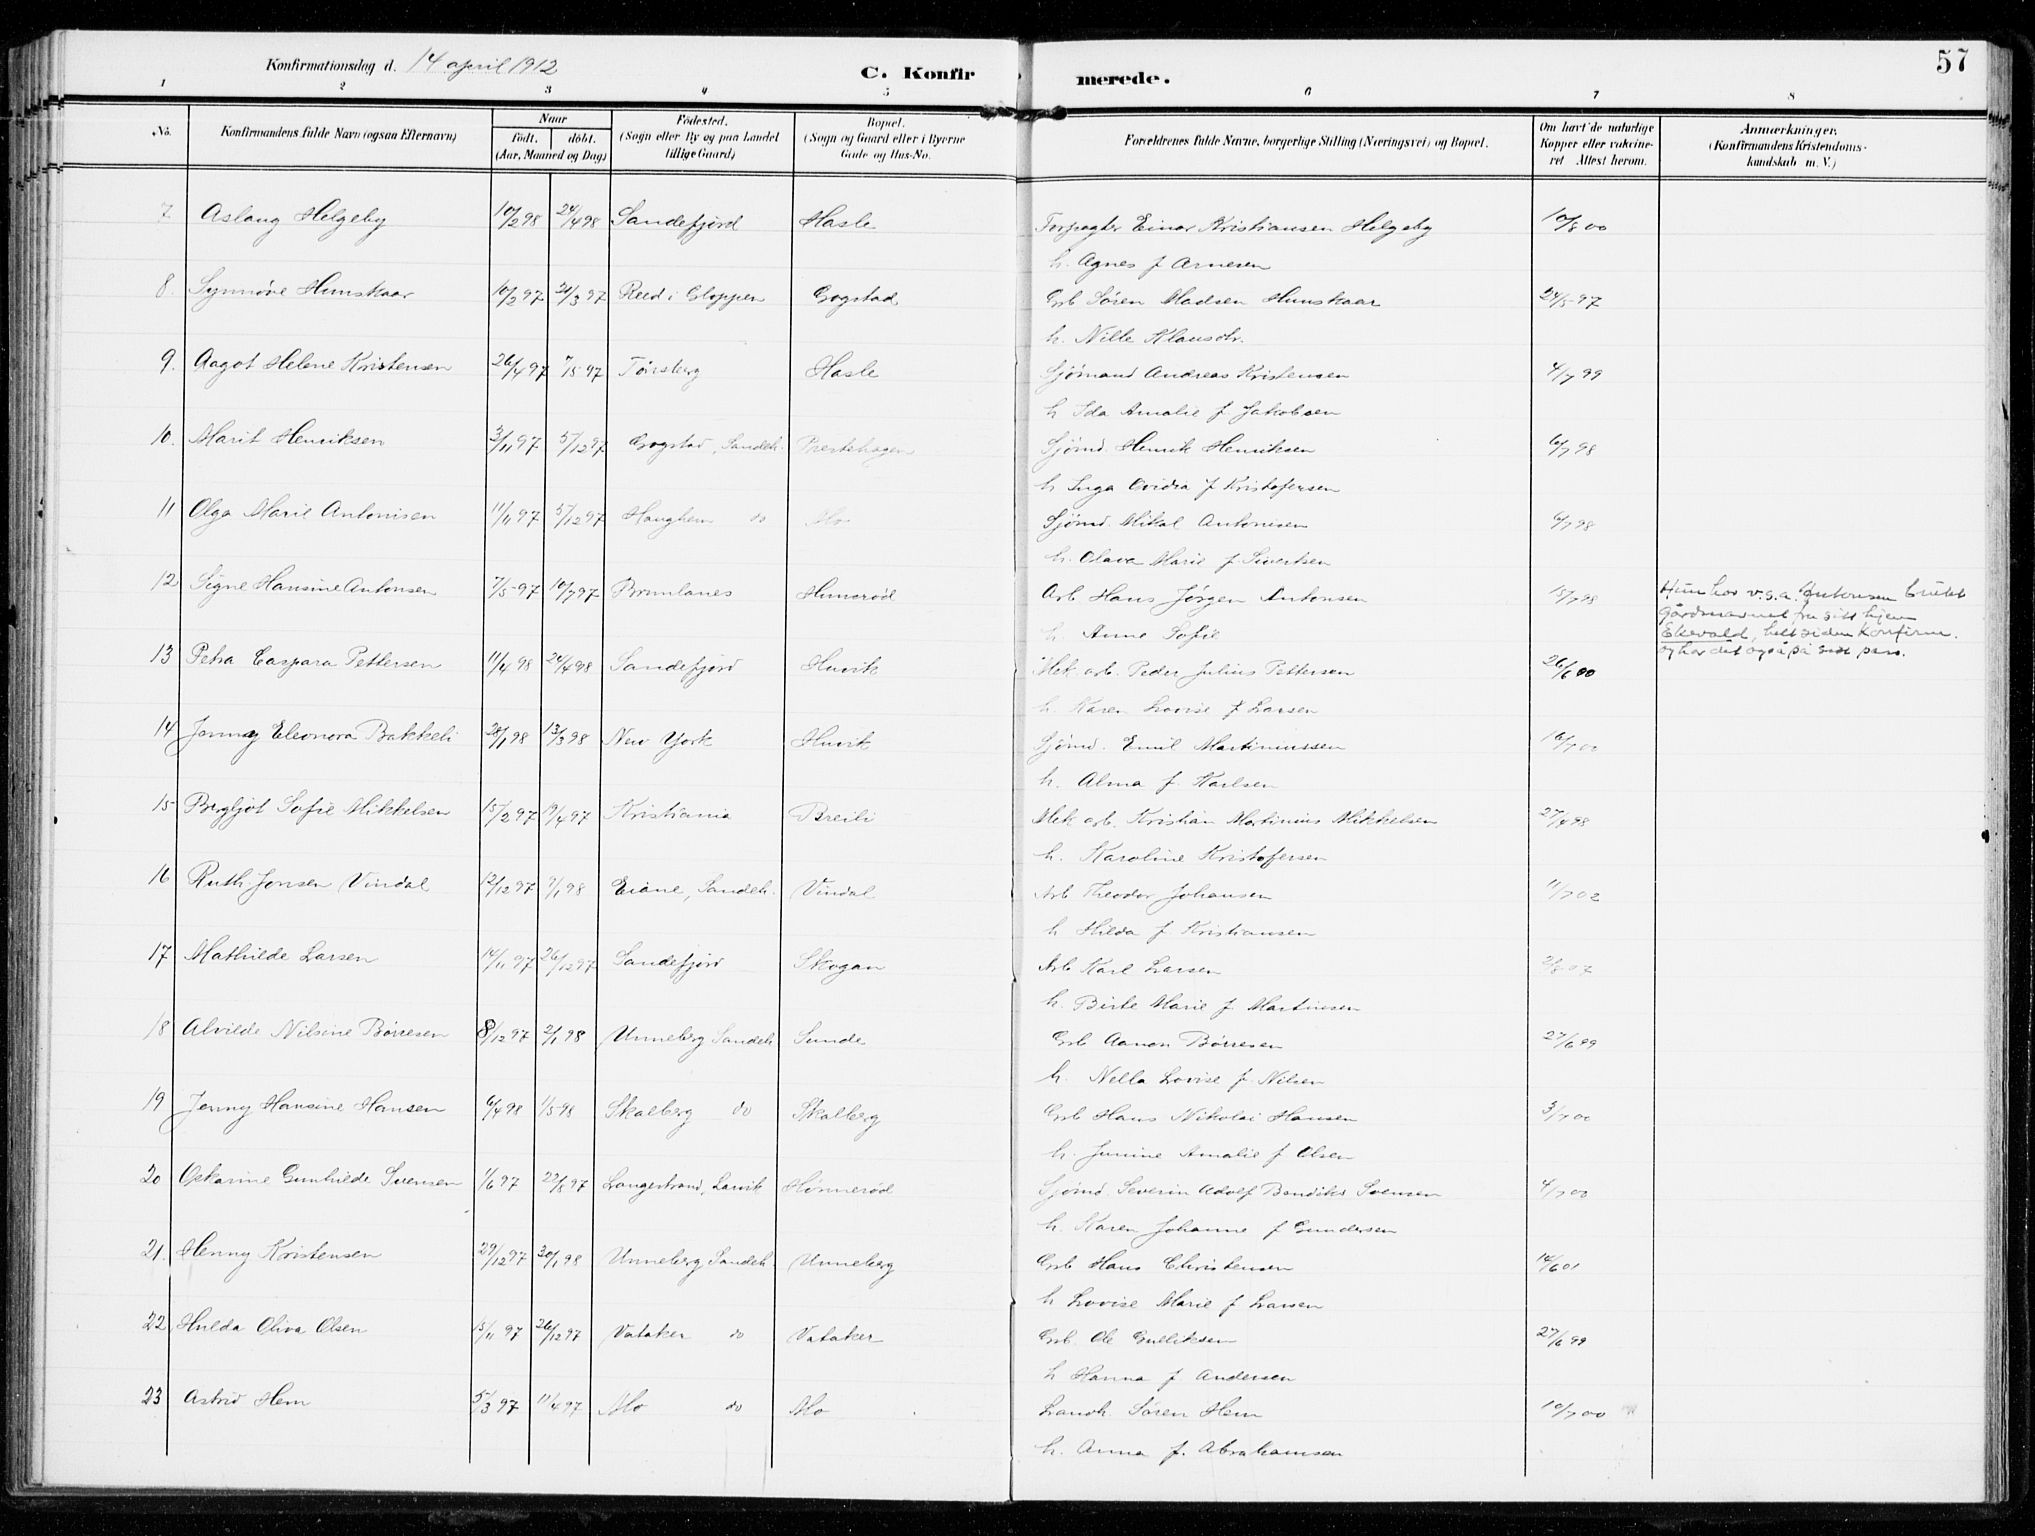 57
Konfirmationsdag d. 14 april 1912
C. Konfirmerede.
1 2 3 4 5 6 7 8
No. Konfirmandens fulde Navn (ogsaa Efternavn) Naar født. døbt. (Aar, Maaned og Dag) Fødested. (Sogn eller By og paa Landet tillige Gaard) Bopæl. (Sogn og Gaard eller i Byerne Gade og Hus-No. Forældrenes fulde Navne, borgerlige Stilling (Næringsvei) og Bopæl. Om havt de naturlige Kopper eller vakcineret Attest herom. Anmærkninger. (Konfirmandens Kristendomskundskab m. V.)
7 Aslaug Helgeby 10/2 98 24/4 98 Sandefjord Hasle Forpagter Einar Kristiansen Helgeby 10/8 00
h. Agnes f Arnesen
8. Synnøve Hunskaar 10/2 97 21/3 97 Reed i Gloppen Gogstad Grb Søren Madsen Hunskaar 24/5 97
h. Nille Klausdtr.
9. Aagot Helene Kristensen 26/4 97 7/5 97 Tønsberg Hasle Sjømand Andreas Kristensen 4/7 99
h Ida Amalie f Jakobsen
10. Marit Henriksen 3/11 97 5/12 97 Gogstad, Sandeh. Prestehagen Sjømd. Henrik Henriksen 6/7 98
h Inga Ovidia f Kristofersen
11 Olga Marie Antonisen 11/11 97 5/12 97 Haughem do Mo Sjømd. Mikal Antonisen 6/7 98
h. Olava Marie f Sivertsen
12 Signe Hansine Antonsen 7/5 97 10/7 97 Brunlanes Hunerød Arb Hans Jørgen Antonsen 15/7 98 Hun har v.s.a. Antonsen brukt
gårdsnavnet fra sitt hjem
Ekevald, helt siden Konfirm.
og har det også på sitt pass.
h. Anne Sofie
13 Petra Caspara Pettersen 11/4 98 24/4 98 Sandefjord Huvik Mek. arb. Peder Julius Pettersen 26/6 00
h. Karen Lovise f Larsen
14 Jenny Eleonora Bakkeli 28/1 98 13/3 98 New York Huvik Sjømd. Emil Martiniussen 16/7 00
h. Alma f. Karlsen
15 Bergljot Sofie Mikkelsen 15/2 97 19/4 97 Kristiania Breili Mek arb. Kristian Martinius Mikkelsen 27/4 98
h. Karoline Kristofersen
16 Ruth Jonsen Vindal 12/12 97 9/1 98 Eiane, Sandeh. Vindal Arb Theodor Johansen 11/7 02
h Hilda f Kristiansen
17 Mathilde Larsen 14/11 97 26/12 97 Sandefjord Skogan Arb Karl Larsen 2/8 07
h. Birte Marie f Martinsen
18 Alvilde Nilsine Børresen 8/12 97 2/1 98 Unneberg Sandeh Sunde Grb Aanon Børresen 27/6 99
h. Nella Lovise f. Nilsen
19 Jenny Hansine Hansen 6/4 98 1/5 98 Skalberg do Skalberg Grb Hans Nikolai Hansen 3/7 00
h. Junine Amalie f Olsen
20 Oskarine Gunhilde Svensen 1/6 97 22/8 97 Langestrand, Larvik Hønnerød Sjømd. Severin Adolf Bendiks Svensen 4/7 00
h. Karen Johanne f Gundersen
21. Henny Kristensen 29/12 97 30/1 98 Unneberg Sandeh. Unneberg Grb Hans Christensen 14/6 01
h Lovise Marie f Larsen
22 Hulda Oliva Olsen 15/11 97 26/12 97 Vataker do Vataker Grb. Ole Gulliksen 27/6 99
h Hanna f Andersen
23 Astrid Hem 5/3 97 11/4 97 Mo do Mo Landh. Søren Hem 10/7 00
h. Anna f. Abrahamsen